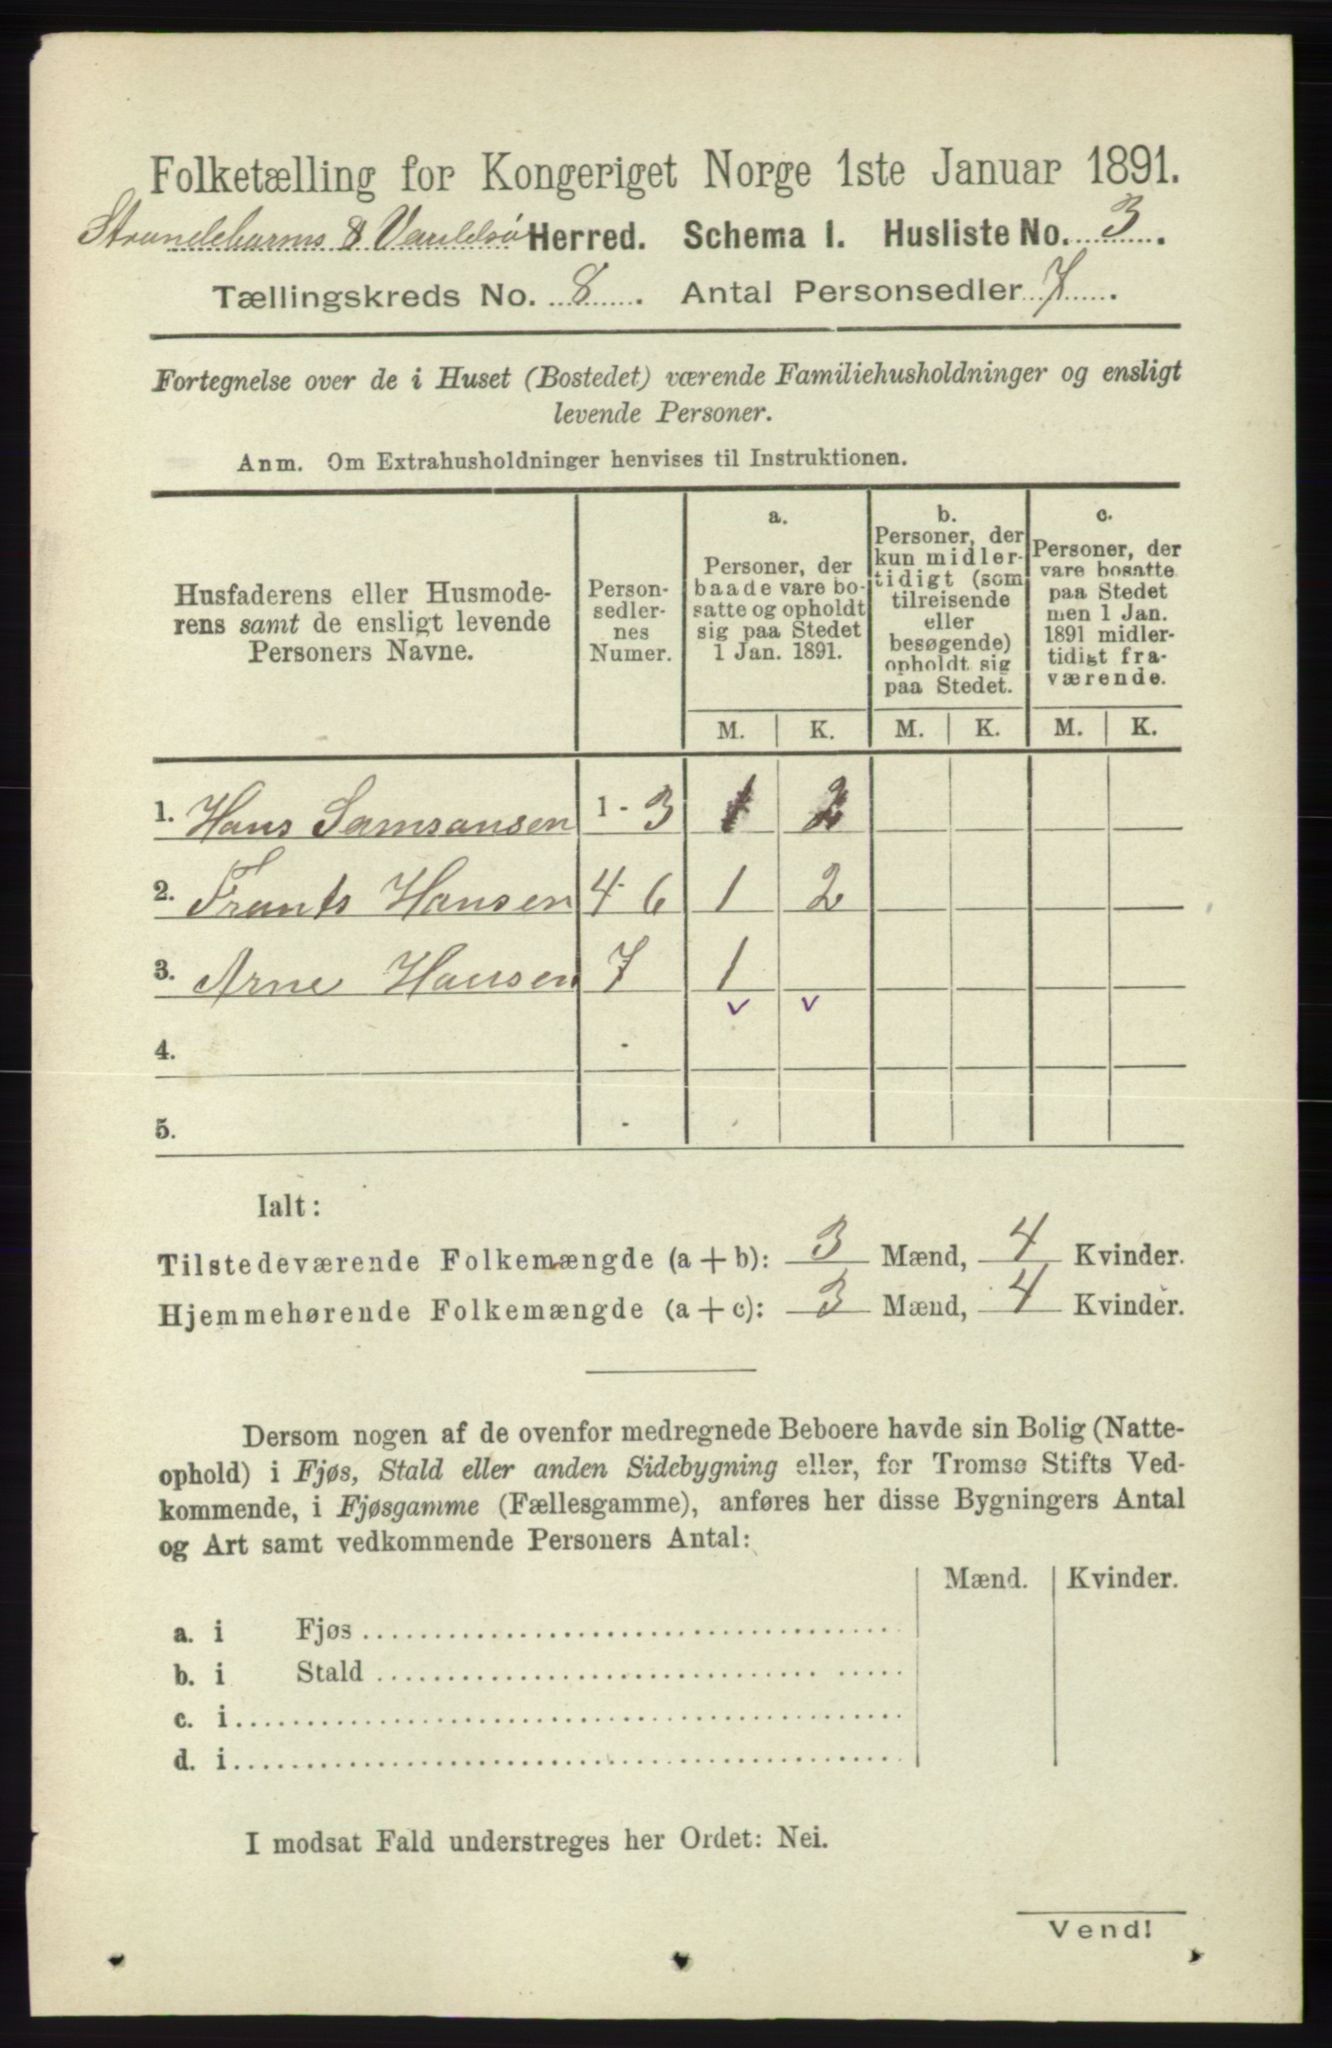 Folketælling for Kongeriget Norge 1ste Januar 1891.
Strandebarms & Varildsö Herred. Schema I. Husliste No. 3.
Tællingskreds No. 8. Antal Personsedler 7.
Fortegnelse over de i Huset (Bostedet) værende Familiehusholdninger og ensligt
levende Personer.
Anm. Om Extrahusholdninger henvises til Instruktionen.
Husfaderens eller Husmode-
rens samt de ensligt levende
Personers Navne.
Person-
sedler-
nes
Numer.
a.
Personer, der
baade vare bo-
satte og opholdt
sig paa Stedet
1 Jan. 1891.
b.
Personer, der
kun midler-
tidigt (som
tilreisende
eller
besøgende)
opholdt sig
paa Stedet.
c.
Personer, der
vare bosatte
paa Stedet
men 1 Jan.
1891 midler-
tidigt fra-
værende.
M. K. M. K. M. K.
1. Hans Samsonsen 1 - 3 1 2
2. Frants Hansen 4 - 6 1 2
3. Arne Hansen 7 1
v v
4. -
5. -
Ialt:
Tilstedeværende Folkemængde (a + b): 3 Mænd, 4 Kvinder.
Hjemmehørende Folkemængde (a + c): 3 Mænd, 4 Kvinder.
Dersom nogen af de ovenfor medregnede Beboere havde sin Bolig (Natte-
ophold) i Fjøs, Stald eller anden Sidebygning eller, for Tromsø Stifts Ved-
kommende, i Fjøsgamme (Fællesgamme), anføres her disse Bygningers Antal
og Art samt vedkommende Personers Antal:
Mænd. Kvinder.
a. i Fjøs
b. i Stald
c. i
d. i
I modsat Fald understreges her Ordet: Nei.
Vend!